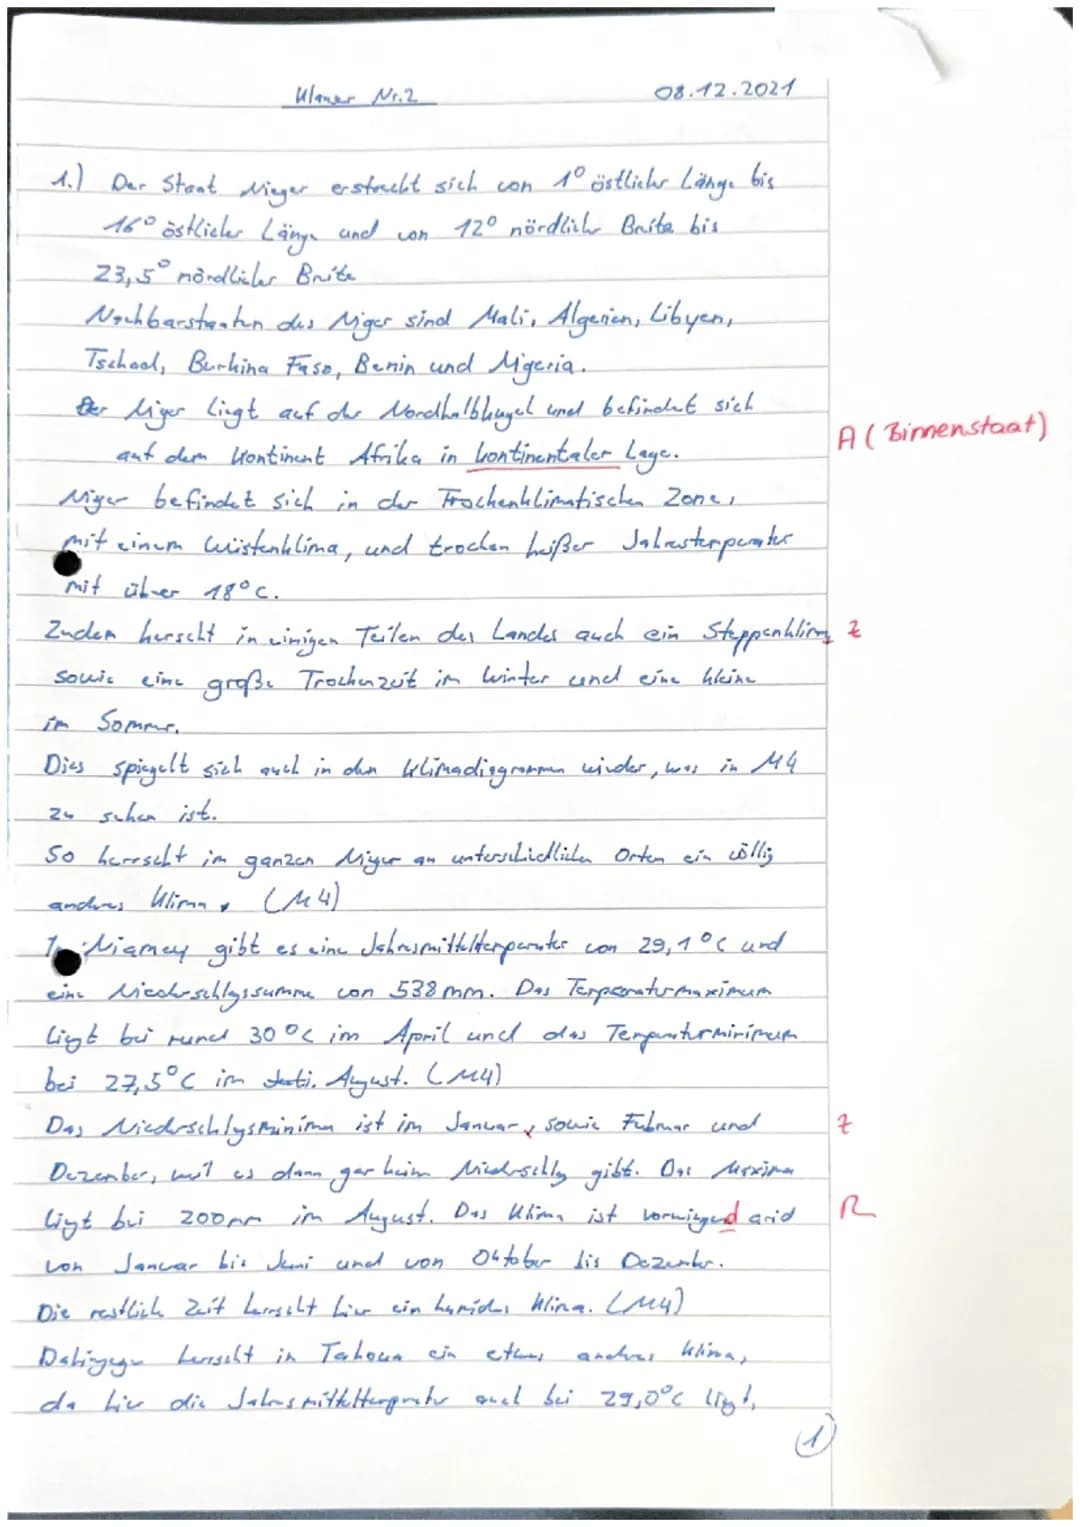 Klausur Nr.2 08.12.2021
1.) Der Staat Niger erstreckt sich von 1° östlicher Länge bis
16° östlicher Länge und von 12° nördlicher Breite bis
23,5° nördlicher Breite
Nachbarstaaten des Niger sind Mali, Algerien, Libyen,
Tschad, Burkina Faso, Benin und Nigeria.
Der Niger liegt auf der Nordhalbkugel und befindet sich
auf dem Kontinent Afrika in kontinentaler Lage. A (Binnenstaat)
Niger befindet sich in der Trockenklimatischen Zone,
mit einem Wüstenklima, und trocken heißer Jahrestemperatur
mit über 18°C.
Zudem herscht in einigen Teilen des Landes auch ein Steppenklima Z
sowie eine große Trockenzeit im Winter und eine kleine
im Sommer.
Dies spiegelt sich auch in den Klimadiagrammen wieder, was in M4
zu sehen ist.
So herrscht im ganzen Niger an unterschiedlichen Orten ein völlig
andres Klima. (M4)
In Niamey gibt es eine Jahresmitteltemperatur von 29,1°C und
eine Niederschlagssumme von 538mm. Das Temperaturmaximum
liegt bei rund 30°C im April und das Temperaturminimum
bei 27,5°C im August. (M4)
Das Niederschlagsminima ist im Januar, sowie Februar und Z
Dezember, weil es dann gar keinen Niederschlag gibt. Das Maxima
liegt bei 200mm im August. Das Klima ist vorwiegend arid R
von Januar bis Juni und von Oktober bis Dezember.
Die restlich Zeit herrscht hier ein humides Klima. (M4)
Dahingegen herrscht in Tahoua ein etwas andres Klima,
da hier die Jahresmitteltemperatur auch bei 29,0°C liegt,
1